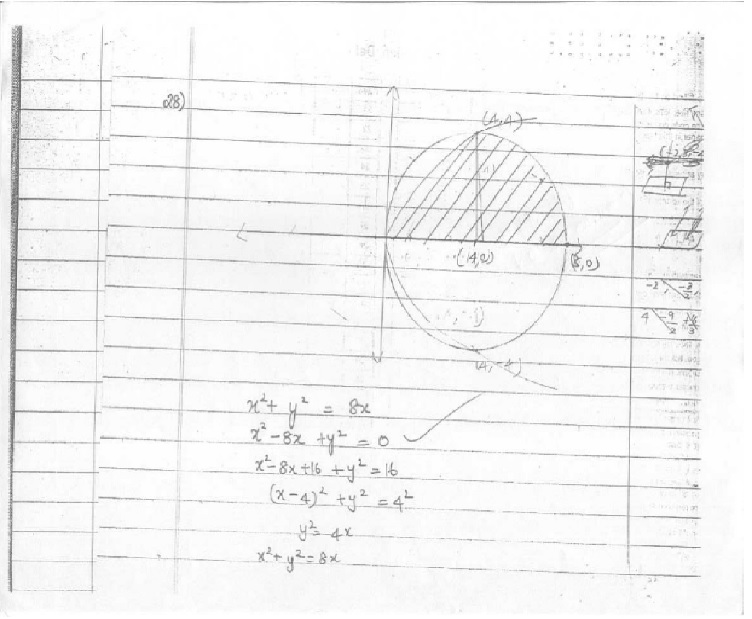 28)
(4,4)
(4,0)
(8,0)
(4,-4)
x² + y² = 8x
x² - 8x + y² = 0
x² - 8x + 16 + y² = 16
(x - 4)² + y² = 4²
y² = 4x
x² + y² = 8x